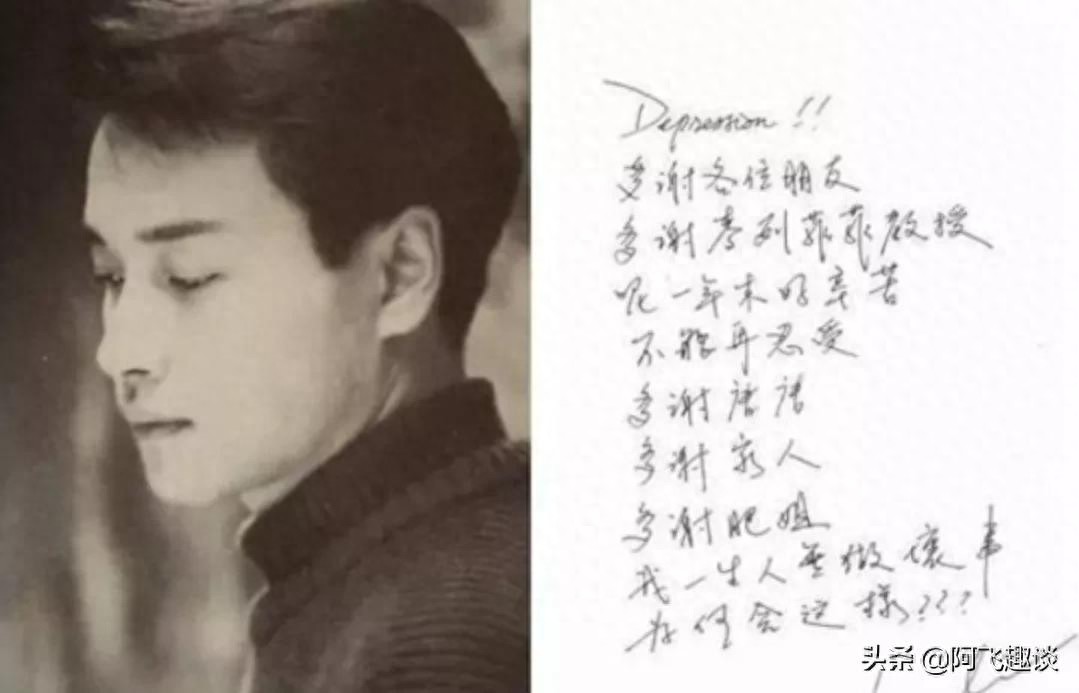 Depression !!
多谢各位朋友
多谢麦列菲菲教授
呢一年来好辛苦
不能再忍受
多谢唐唐
多谢家人
多谢肥姐
我一生人无做壞事
为何会这樣???
头条 @阿飞趣谈